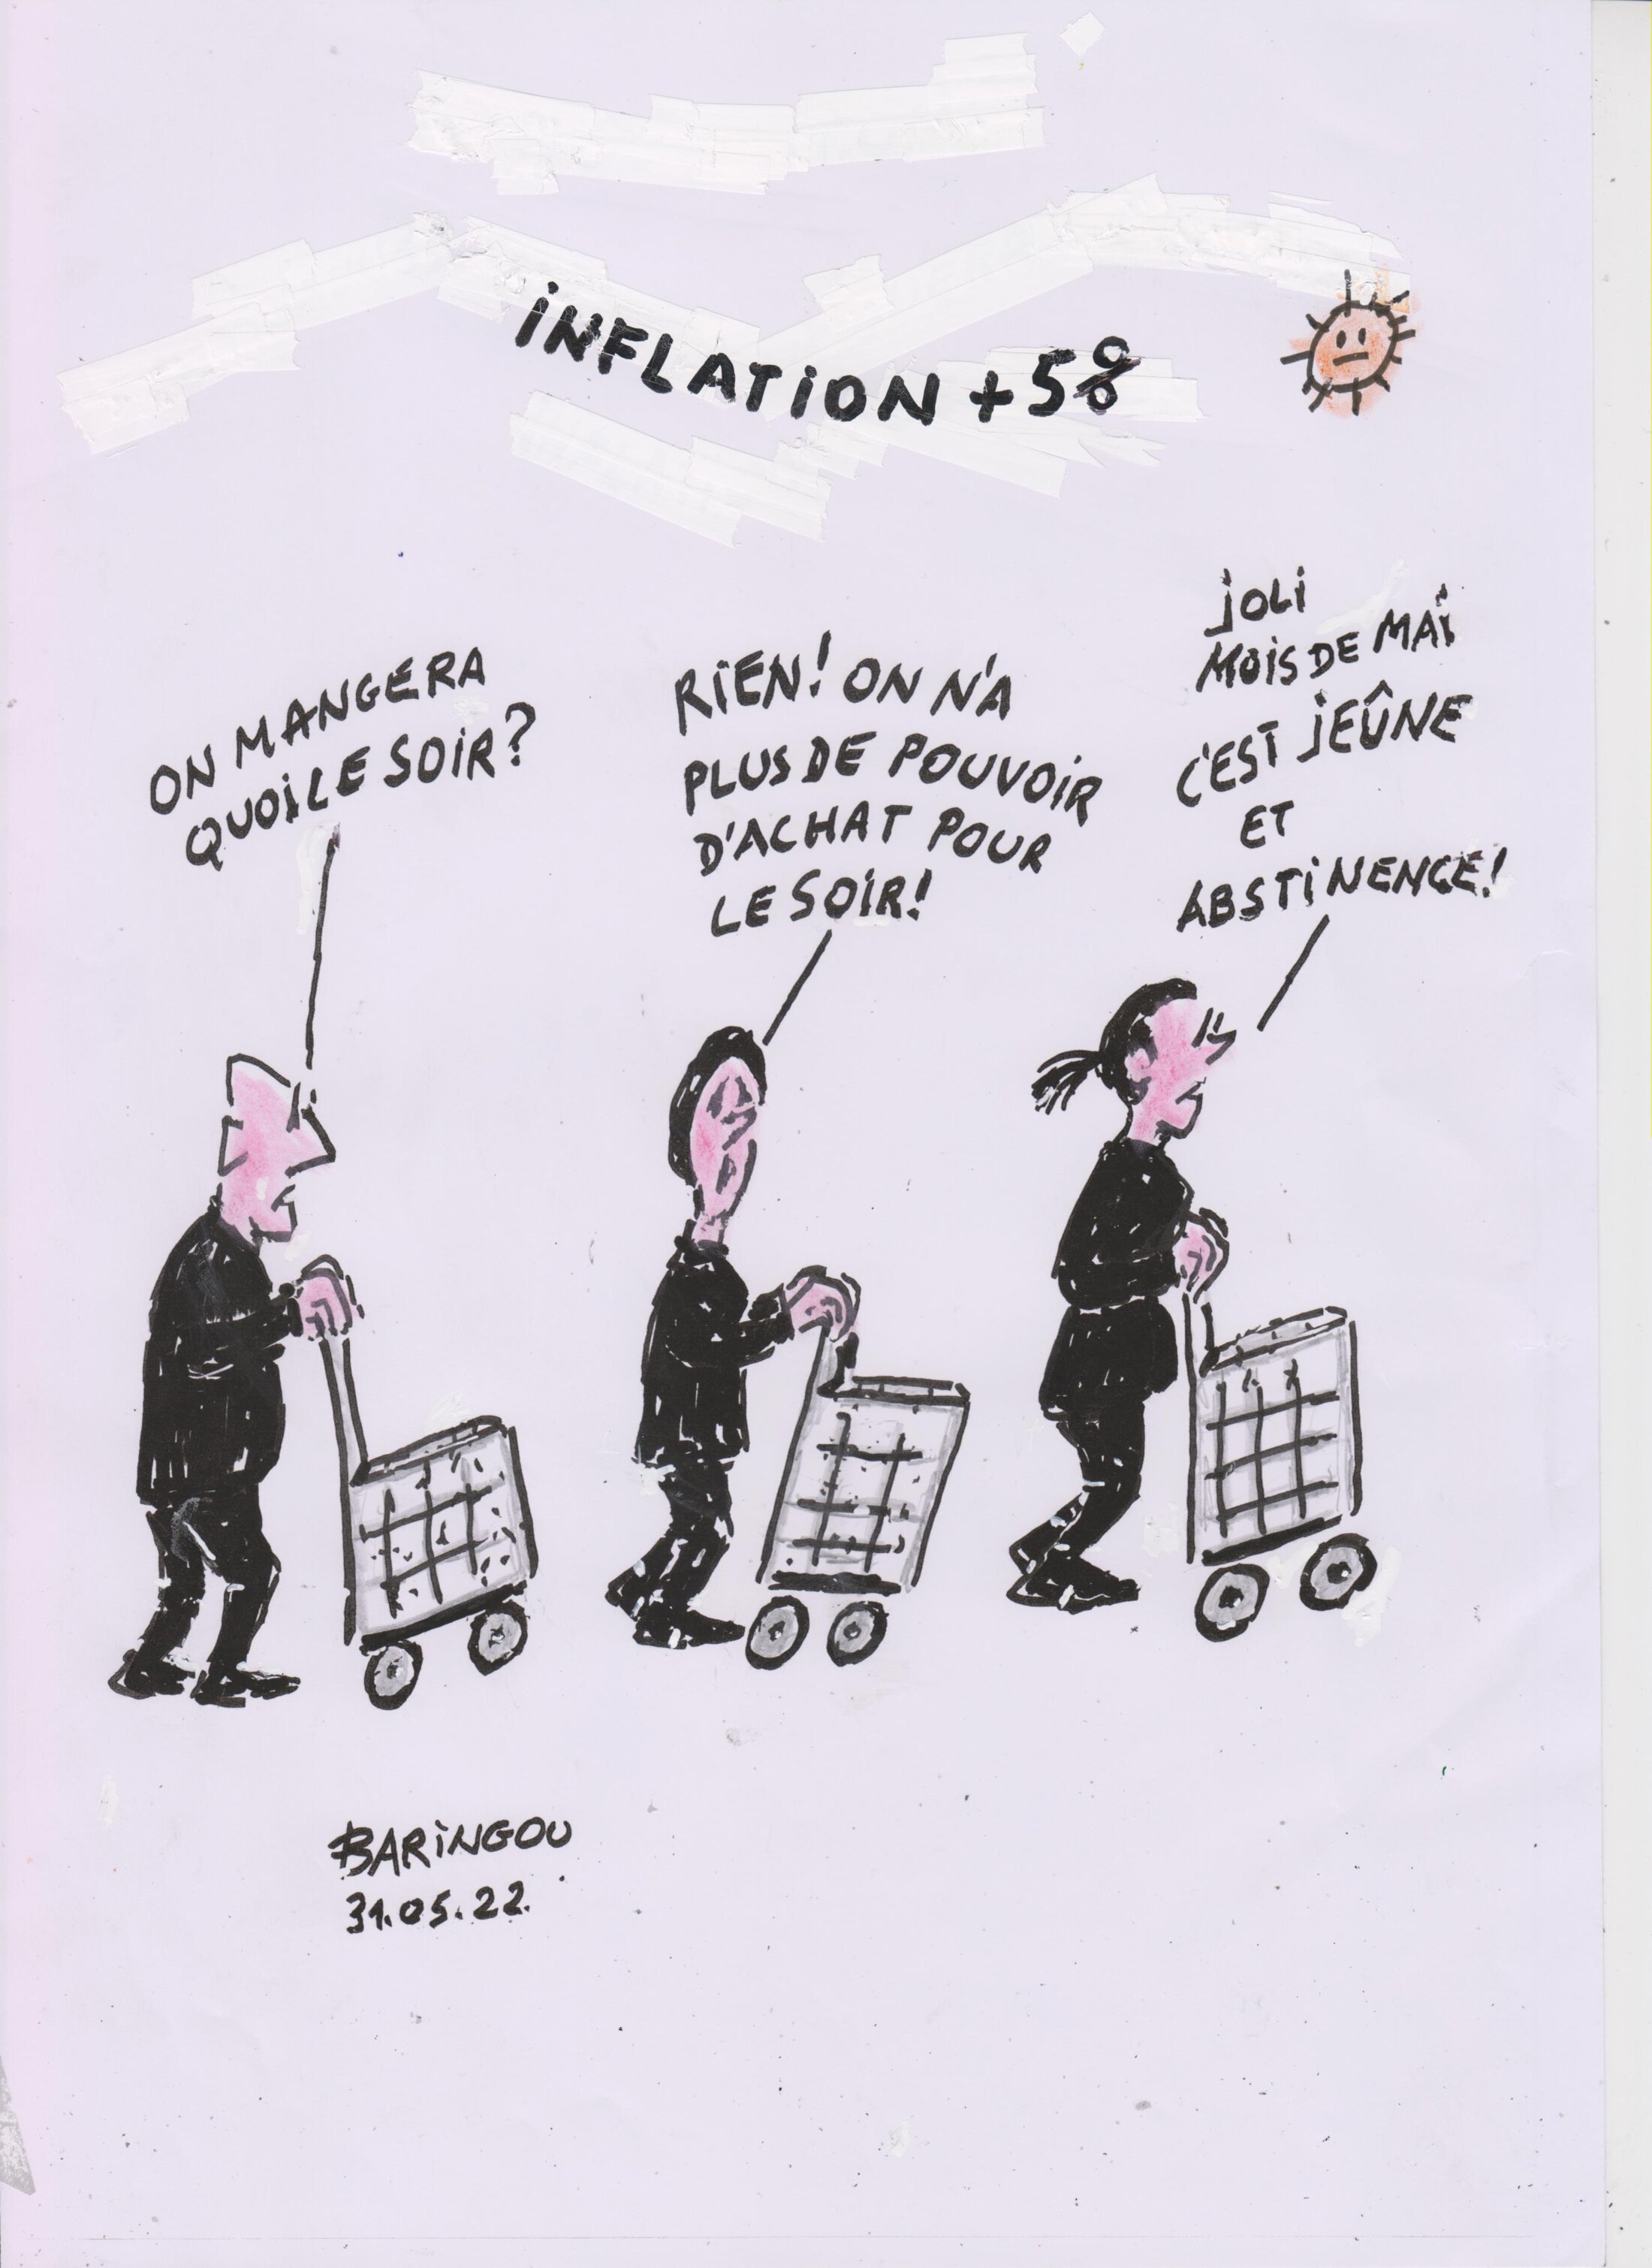 iNFLATiON +5%
ON MANGERA
QUOi LE SOiR?
RiEN! ON N'A
PLUS DE POUVOiR
D'ACHAT POUR
LE SOiR!
jOLi
MOiS DE MAÏ
C'EST jEÛNE
ET
ABSTiNENCE!
BARiNGOU
31.05.22.